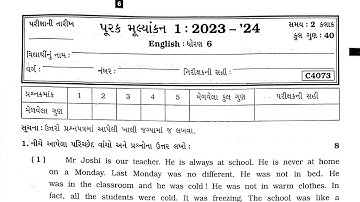 6
પરીક્ષાની તારીખ
પૂરક મૂલ્યાંકન 1 : 2023 – '24
સમય : 2 કલાક
English : ધોરણ 6
કુલ ગુણ : 40
વિદ્યાર્થીનું નામ :
વર્ગ : નંબર : નિરીક્ષકની સહી :
C4073
પ્રશ્નક્રમાંક 1 2 3 4 5 મેળવેલા કુલ ગુણ પરીક્ષકની સહી
મેળવેલા ગુણ
સૂચના : ઉત્તરો પ્રશ્નપત્રમાં આપેલી ખાલી જગ્યામાં જ લખવા.
1. નીચે આપેલા પરિચ્છેદ વાંચો અને પ્રશ્નોના ઉત્તર લખો : 8
(1) Mr Joshi is our teacher. He is always at school. He is never at home
on a Monday. Last Monday was no different. He was not in bed. He
was in the classroom and he was cold! He was not in warm clothes. In
fact, all the students were cold. It was freezing. The school was like a